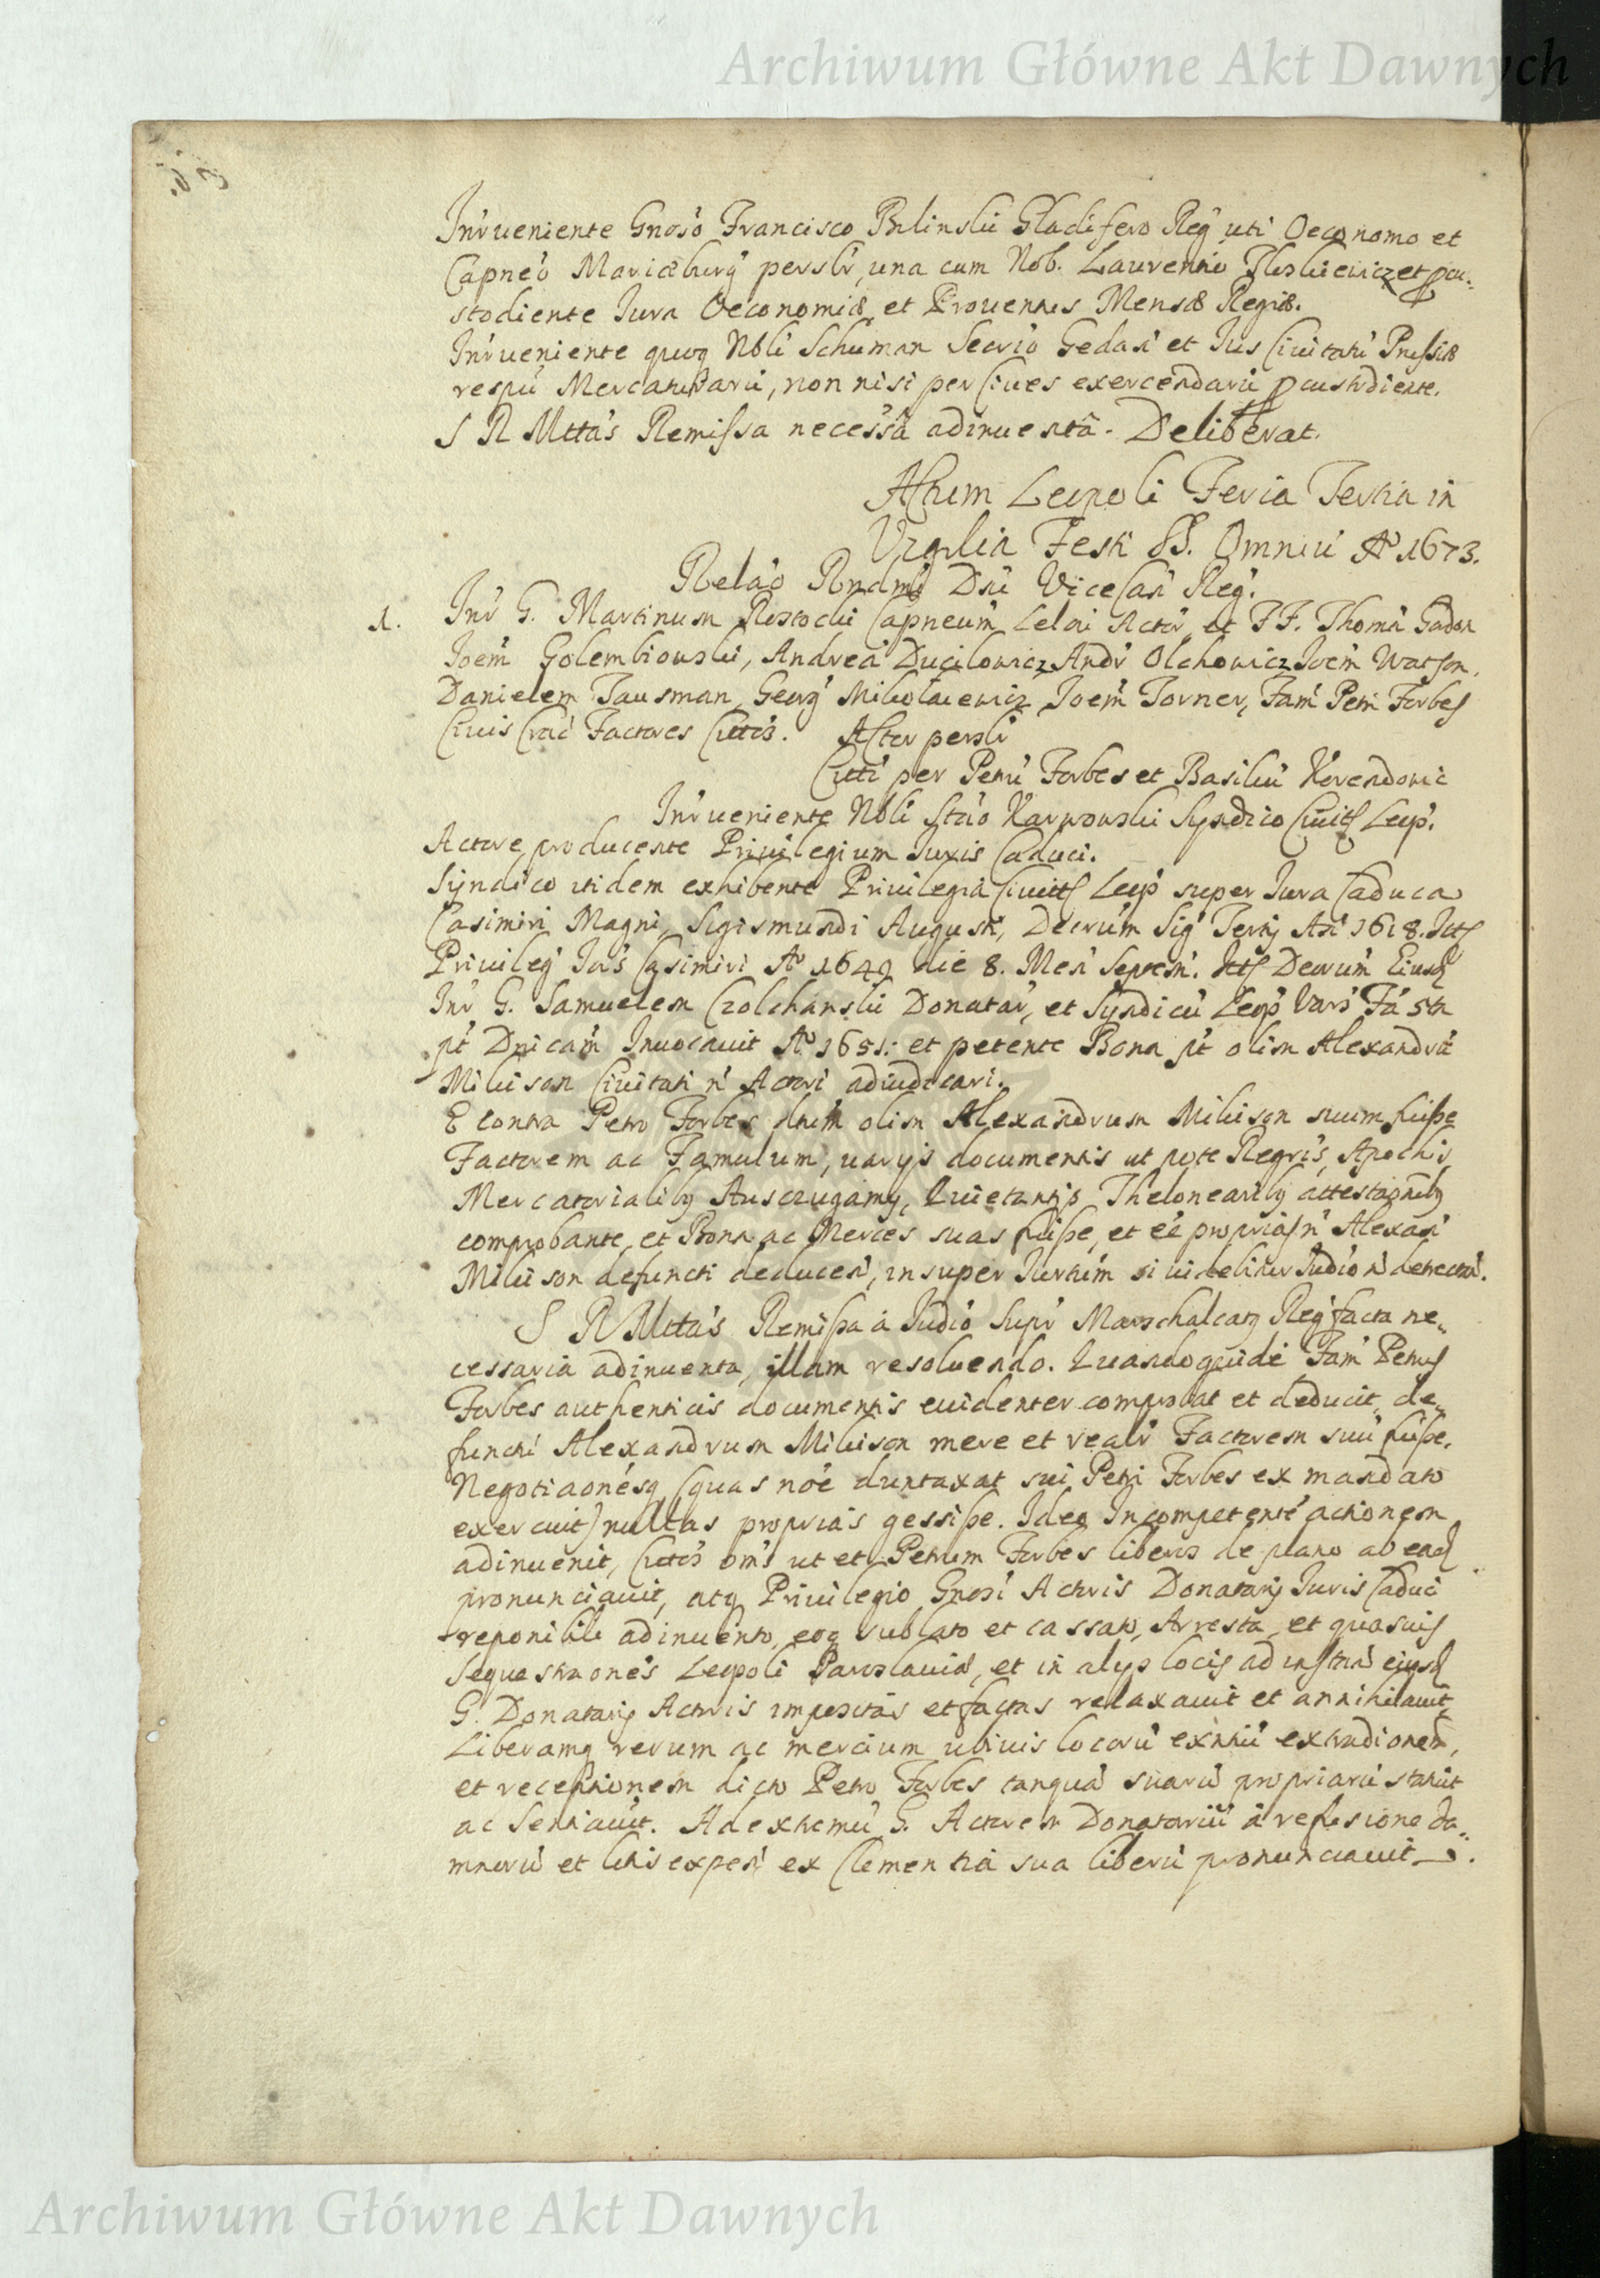 Archiwum Główne Akt Dawnych
Inrueniente Gnoso Francisco Bilinski Gladifero Reg uti Oeconomo et
Capneo Mariæburg perslr, una cum Nob. Laurentio et pcu-
stodiente Iura Oeconomiæ et Prouentus Mensæ Regiæ.
Inrueniente quoq Nbli Schuman Secrio Gedan et Ius Ciuitatu Prussiæ
respu Mercaturaru, non nisi per Ciues exercendaru pcustodiente.
S R Mttas Remissa necessa adinuenta. Deliberat.
Actum Leopoli Feria Tertia in
Vigilia Festi SS. Omniu Ao 1673.
Relao Rndmi Dni ViceCan Reg.
1. Inr G. Martinum Capneum Lelou Actor, et FF. Thoma Gadon
Joem Golembiowski, Andrea Ducilowicz Andr Olchowicz Joem Watson,
Danielem Tausman, Georg Mikolaiewicz Joem Torner, Fam Petri Forbes
Ciuis Crac Factores Cittos. Actor perslr
Citti per Petru Forbes et Basiliu
Inrueniente Nbli Stao Karwowski Syndico Ciuitt Leop.
Actore producente Priuilegium Iuris Caduci.
Syndico itidem exhibente Priuilegia Ciuitt Leop super Iura Caduca
Casimiri Magni, Sigismundi Augusti, Decrum Sig Tertij An 1618. Itt
Priuileg Ios Casimiri Ao 1649 die 8. Men Septem. Itt Decrum Eiusd
Inr G. Samuelem Czolchanski Donatar, et Syndicu Leop Vars Fa 5ta
pt Dnicam Inuocauit Ao 1651. et petente Bona pt olim Alexandru
Mikison Ciuitati n Actori adiudicari.
E contra Petro Forbes dtum olim Alexandrum Mikison suum fuisse
Factorem ac Famulum, uarijs documentis ut pote Regris, Apochis,
Mercatorialibq Auscugamq, Quietantijs Thelonearibq attestaonibq
comprobante, et Bona ac Merces suas fuisse, et ee proprias n Alexan
Mikison defuncti deducen, insuper Iurtum si uidebitur Iudio n detrectan.
S R Mttas Remissa a Iudio Supr Marschalcorq Reg facta ne-
cessaria adinuenta, illam resoluendo. Quandoquide Fam Petrus
Forbes authenticis documentis euidenter comprobat et deducit, de-
functu Alexandrum Mikison mere et realr Factorem suu fuisse.
Negotiaonesq (quas noe duntaxat sui Petri Forbes ex mandato
exercuit) nullas proprias gessisse. Ideo Incompetente actionem
adinuenit, Cittos oms ut et Petrum Forbes liberos de plano ab ead
pronunciauit, atq Priuilegio Gnosi Actoris Donatarij Iuris Caduci
reponibili adinuento, eoq sublato et cassato, Arresta, et quasuis
sequestraones Leopoli Iaroslauiæ, et in alijs locis ad instan eiusd
G. Donatarij Actoris impositas et factas relaxauit et annihilauit,
Liberamq rerum ac mercium ubiuis locoru exntiu extradionem,
et receptionem dicto Petro Forbes tanqua suaru propriaru statuit
ac Sentiauit. Ad extremu G. Actorem Donatariu a refusione da-
mnoru et litis expen ex Clementia sua liberu pronunciauit.
Archiwum Główne Akt Dawnych